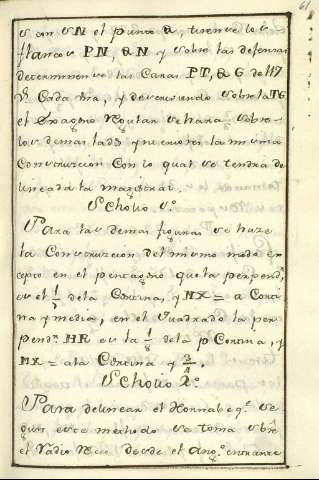 61
s con SN el punto Q, tirense los
flancos PN, QN y sobre las defensas
determinense las Caras PT, QG de 117
Cada una, y descriviendo sobre la TG
el Exagono sobre
los demas lados quenores la misma
Construccion Con lo qual se tendra de
lineada la magistral.
Scholio 1º.
Para las demas figuras se haze
la Construccion del mismo modo ex
cepto en el pentagono que la perpendr.
es el 1/7 de la Cortina, y MX = a Corti
na y media, en el Quadrado la per
pendr. HR es la 1/8 de la p Cortina, y
MX = a la Cortina y 3/4.
Scholio 2º
Para delinear el Honnabeq.º se
gun este methodo se toma sobre
el Radio desde el Ang.º entrante